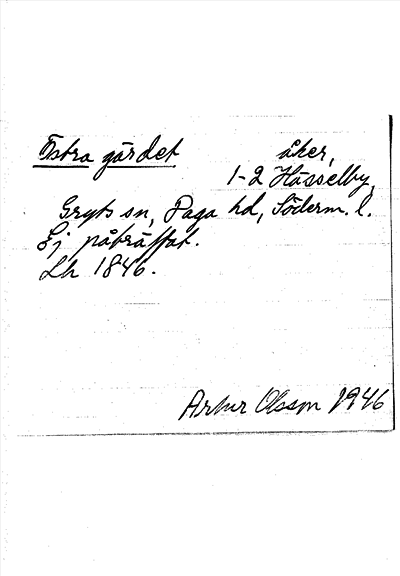 Östra gärdet åker,
1-2 Hässelby,
Gryts sn, Daga hd, Söderm. l.
Ej påträffat.
Lh 1846.
Artur Olsson 1946